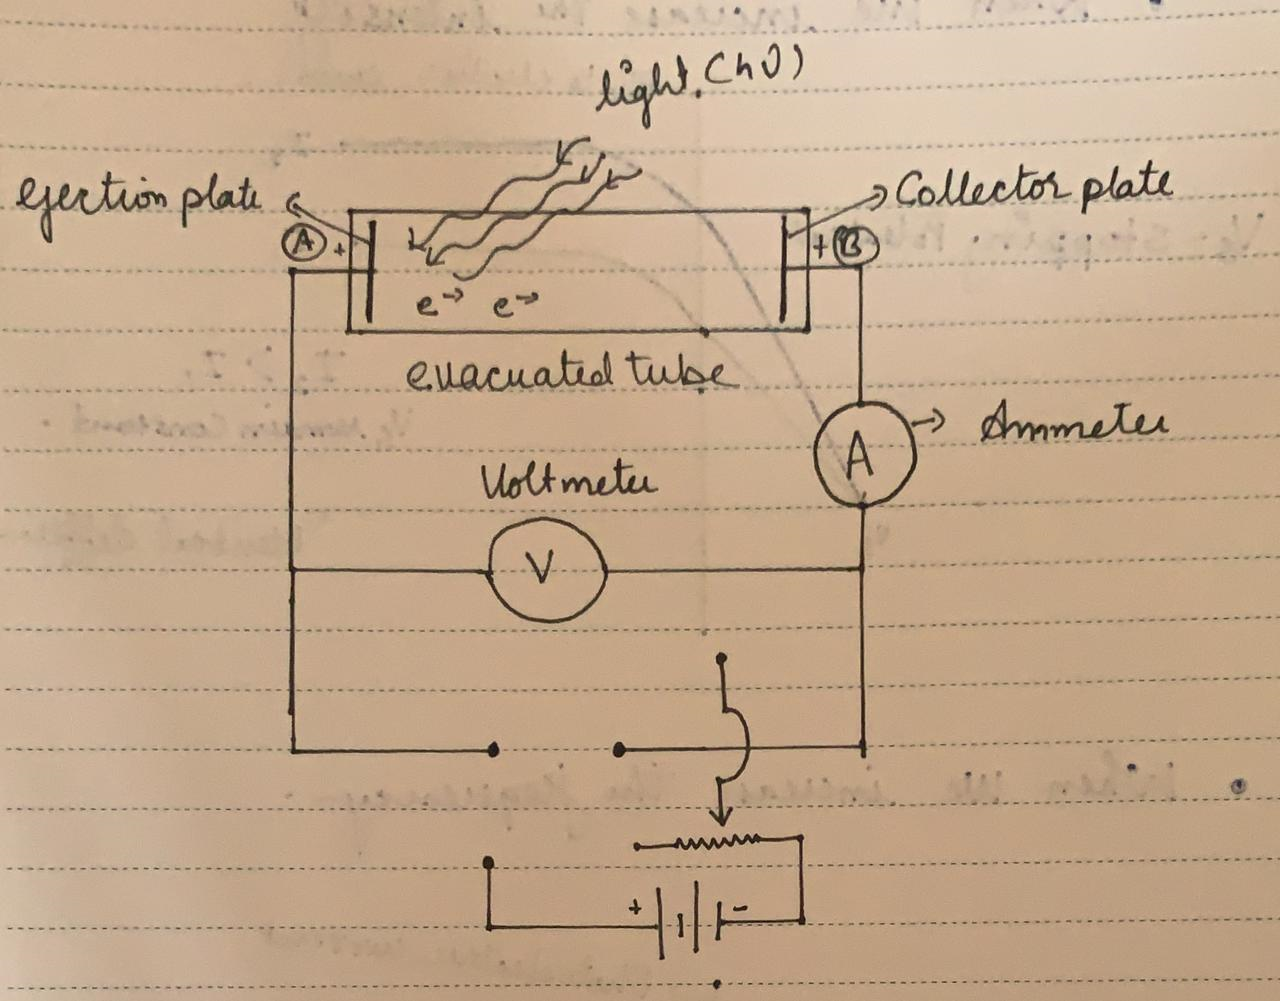 light. (hυ)
ejection plate
Collector plate
A +
+ B
e→ e→
evacuated tube
Ammeter
A
Voltmeter
V
+ -